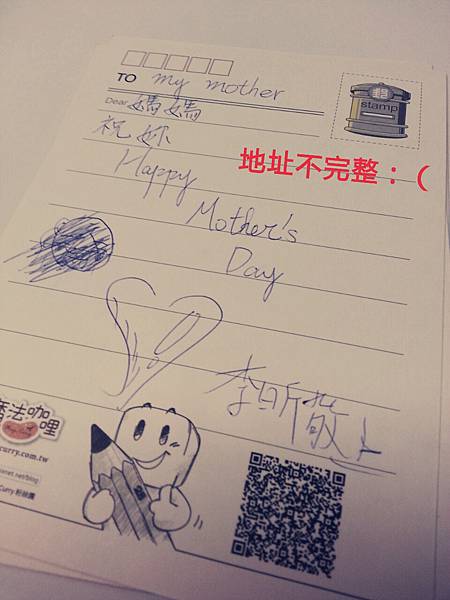 TO my mother
stamp
Dear 媽媽
祝妳
地址不完整：（
Happy
Mother's
Day
李昕敬上
魔法咖哩
curry.com.tw
anet.net/blog
Curry 粉絲團